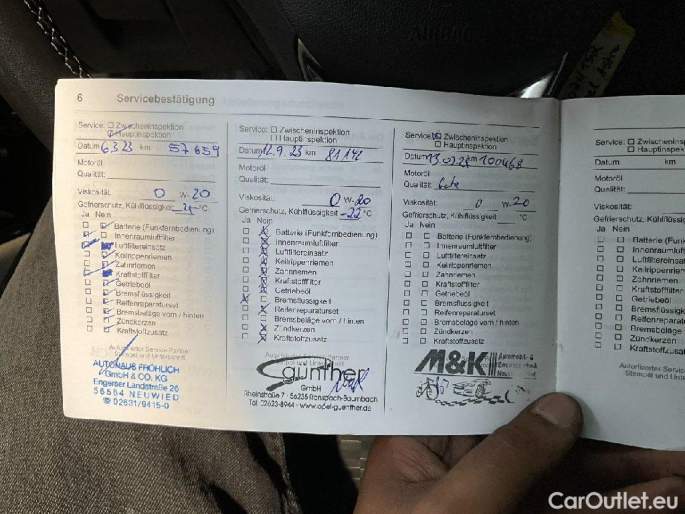 6 Servicebestätigung
Service: Zwischeninspektion
Hauptinspektion
Datum 6.3.23 km 57659
Motoröl
Qualität:
Viskosität: 0 W-20
Gefrierschutz, Kühlflüssigkeit °C
Ja Nein
Batterie (Funkfernbedienung)
Innenraumluftfilter
Luftfiltereinsatz
Keilrippenriemen
Zahnriemen
Kraftstofffilter
Getriebeöl
Bremsflüssigkeit
Reifenreparaturset
Bremsbeläge vorn / hinten
Zündkerzen
Kraftstoffzusatz
Autorisierter Service Partner
Stempel und Unterschrift
AUTOHAUS FRÖHLICH
GmbH & CO. KG
Engerser Landstraße 26
56564 NEUWIED
02631/9415-0
Service: Zwischeninspektion
Hauptinspektion
Datum 12.9.23 km 81142
Motoröl
Qualität:
Viskosität: 0 W-20
Gefrierschutz, Kühlflüssigkeit -22 °C
Ja Nein
Batterie (Funkfernbedienung)
Innenraumluftfilter
Luftfiltereinsatz
Keilrippenriemen
Zahnriemen
Kraftstofffilter
Getriebeöl
Bremsflüssigkeit
Reifenreparaturset
Bremsbeläge vorn / hinten
Zündkerzen
Kraftstoffzusatz
günther
GmbH
Rheinstraße 7 · 56235 Ransbach-Baumbach
Tel. 02623-8964 · www.opel-guenther.de
Service: Zwischeninspektion
Hauptinspektion
Datum km 100468
Motoröl
Qualität:
Viskosität: 0 W-20
Gefrierschutz, Kühlflüssigkeit °C
Ja Nein
Batterie (Funkfernbedienung)
Innenraumluftfilter
Luftfiltereinsatz
Keilrippenriemen
Zahnriemen
Kraftstofffilter
Getriebeöl
Bremsflüssigkeit
Reifenreparaturset
Bremsbeläge vorn / hinten
Zündkerzen
Kraftstoffzusatz
M&K
Service: Zwischeninspektion
Hauptinspektion
Datum km
Motoröl
Qualität:
Viskosität:
Gefrierschutz, Kühlflüssig
Ja Nein
Batterie (Funkfernb
Innenraumluftfilter
Luftfiltereinsatz
Keilrippenriemen
Zahnriemen
Kraftstofffilter
Getriebeöl
Bremsflüssigkeit
Reifenreparaturse
Bremsbeläge
Zündkerzen
Kraftstoffzusatz
Autorisierter Servic
Stempel und Unte
CarOutlet.eu